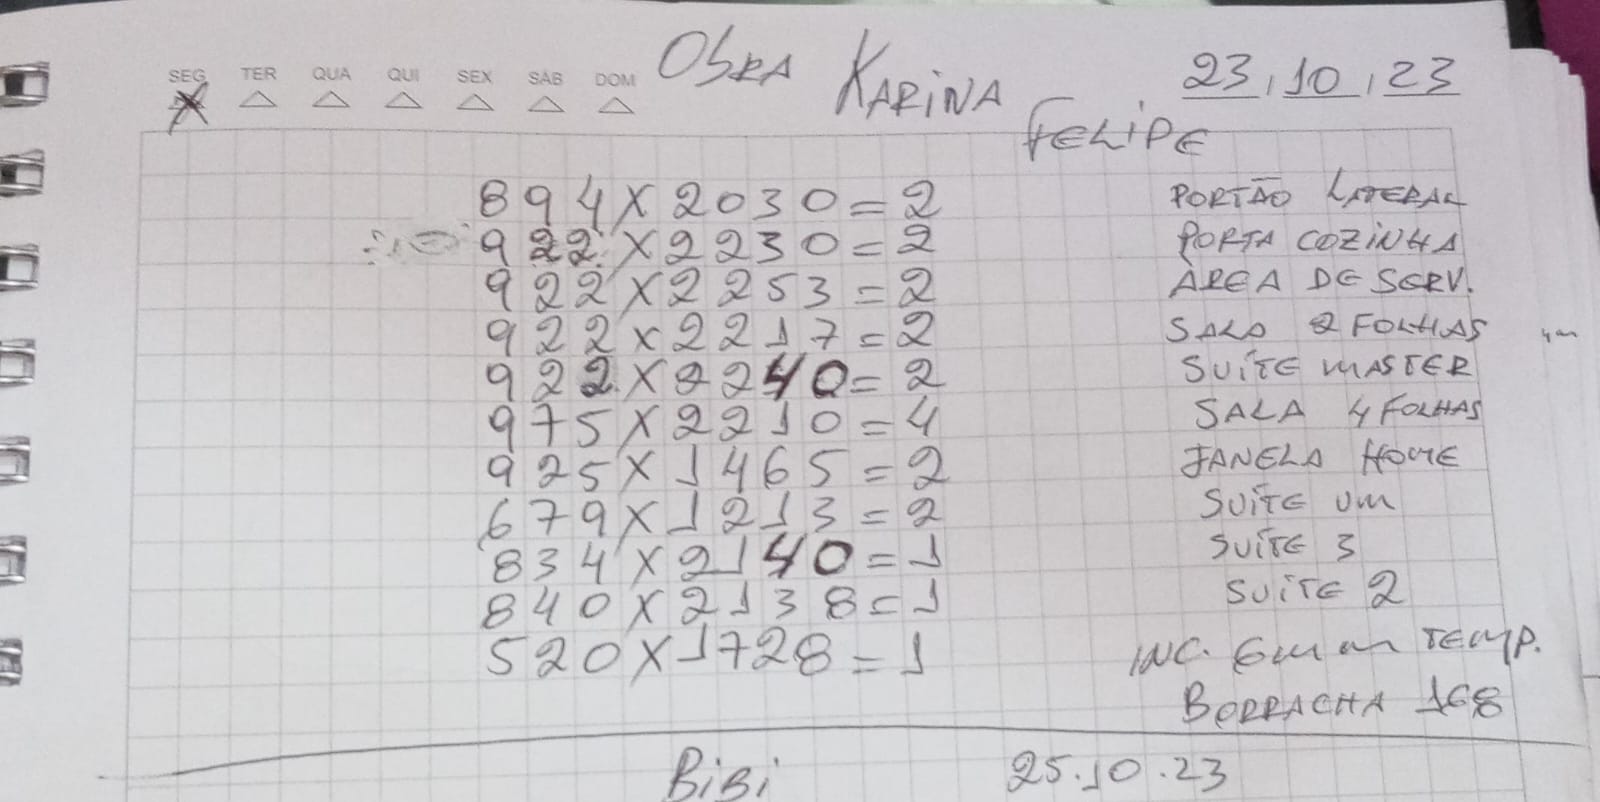 SEG TER QUA QUI SEX SÁB DOM OBRA KARINA 23,10,23
FELIPE
894X2030=2 PORTÃO LATERAL
922X2230=2 PORTA COZINHA
922X2253=2 AREA DE SERV.
922X2217=2 SALA 2 FOLHAS
922X2240=2 SUÍTE MASTER
975X2210=4 SALA 4 FOLHAS
925X1465=2 JANELA HOME
679X1213=2 SUÍTE UM
834X2140=1 SUÍTE 3
840X2138=1 SUÍTE 2
520X1728=1 INC. 6mm TEMP.
BORRACHA 168
BiBi 25.10.23